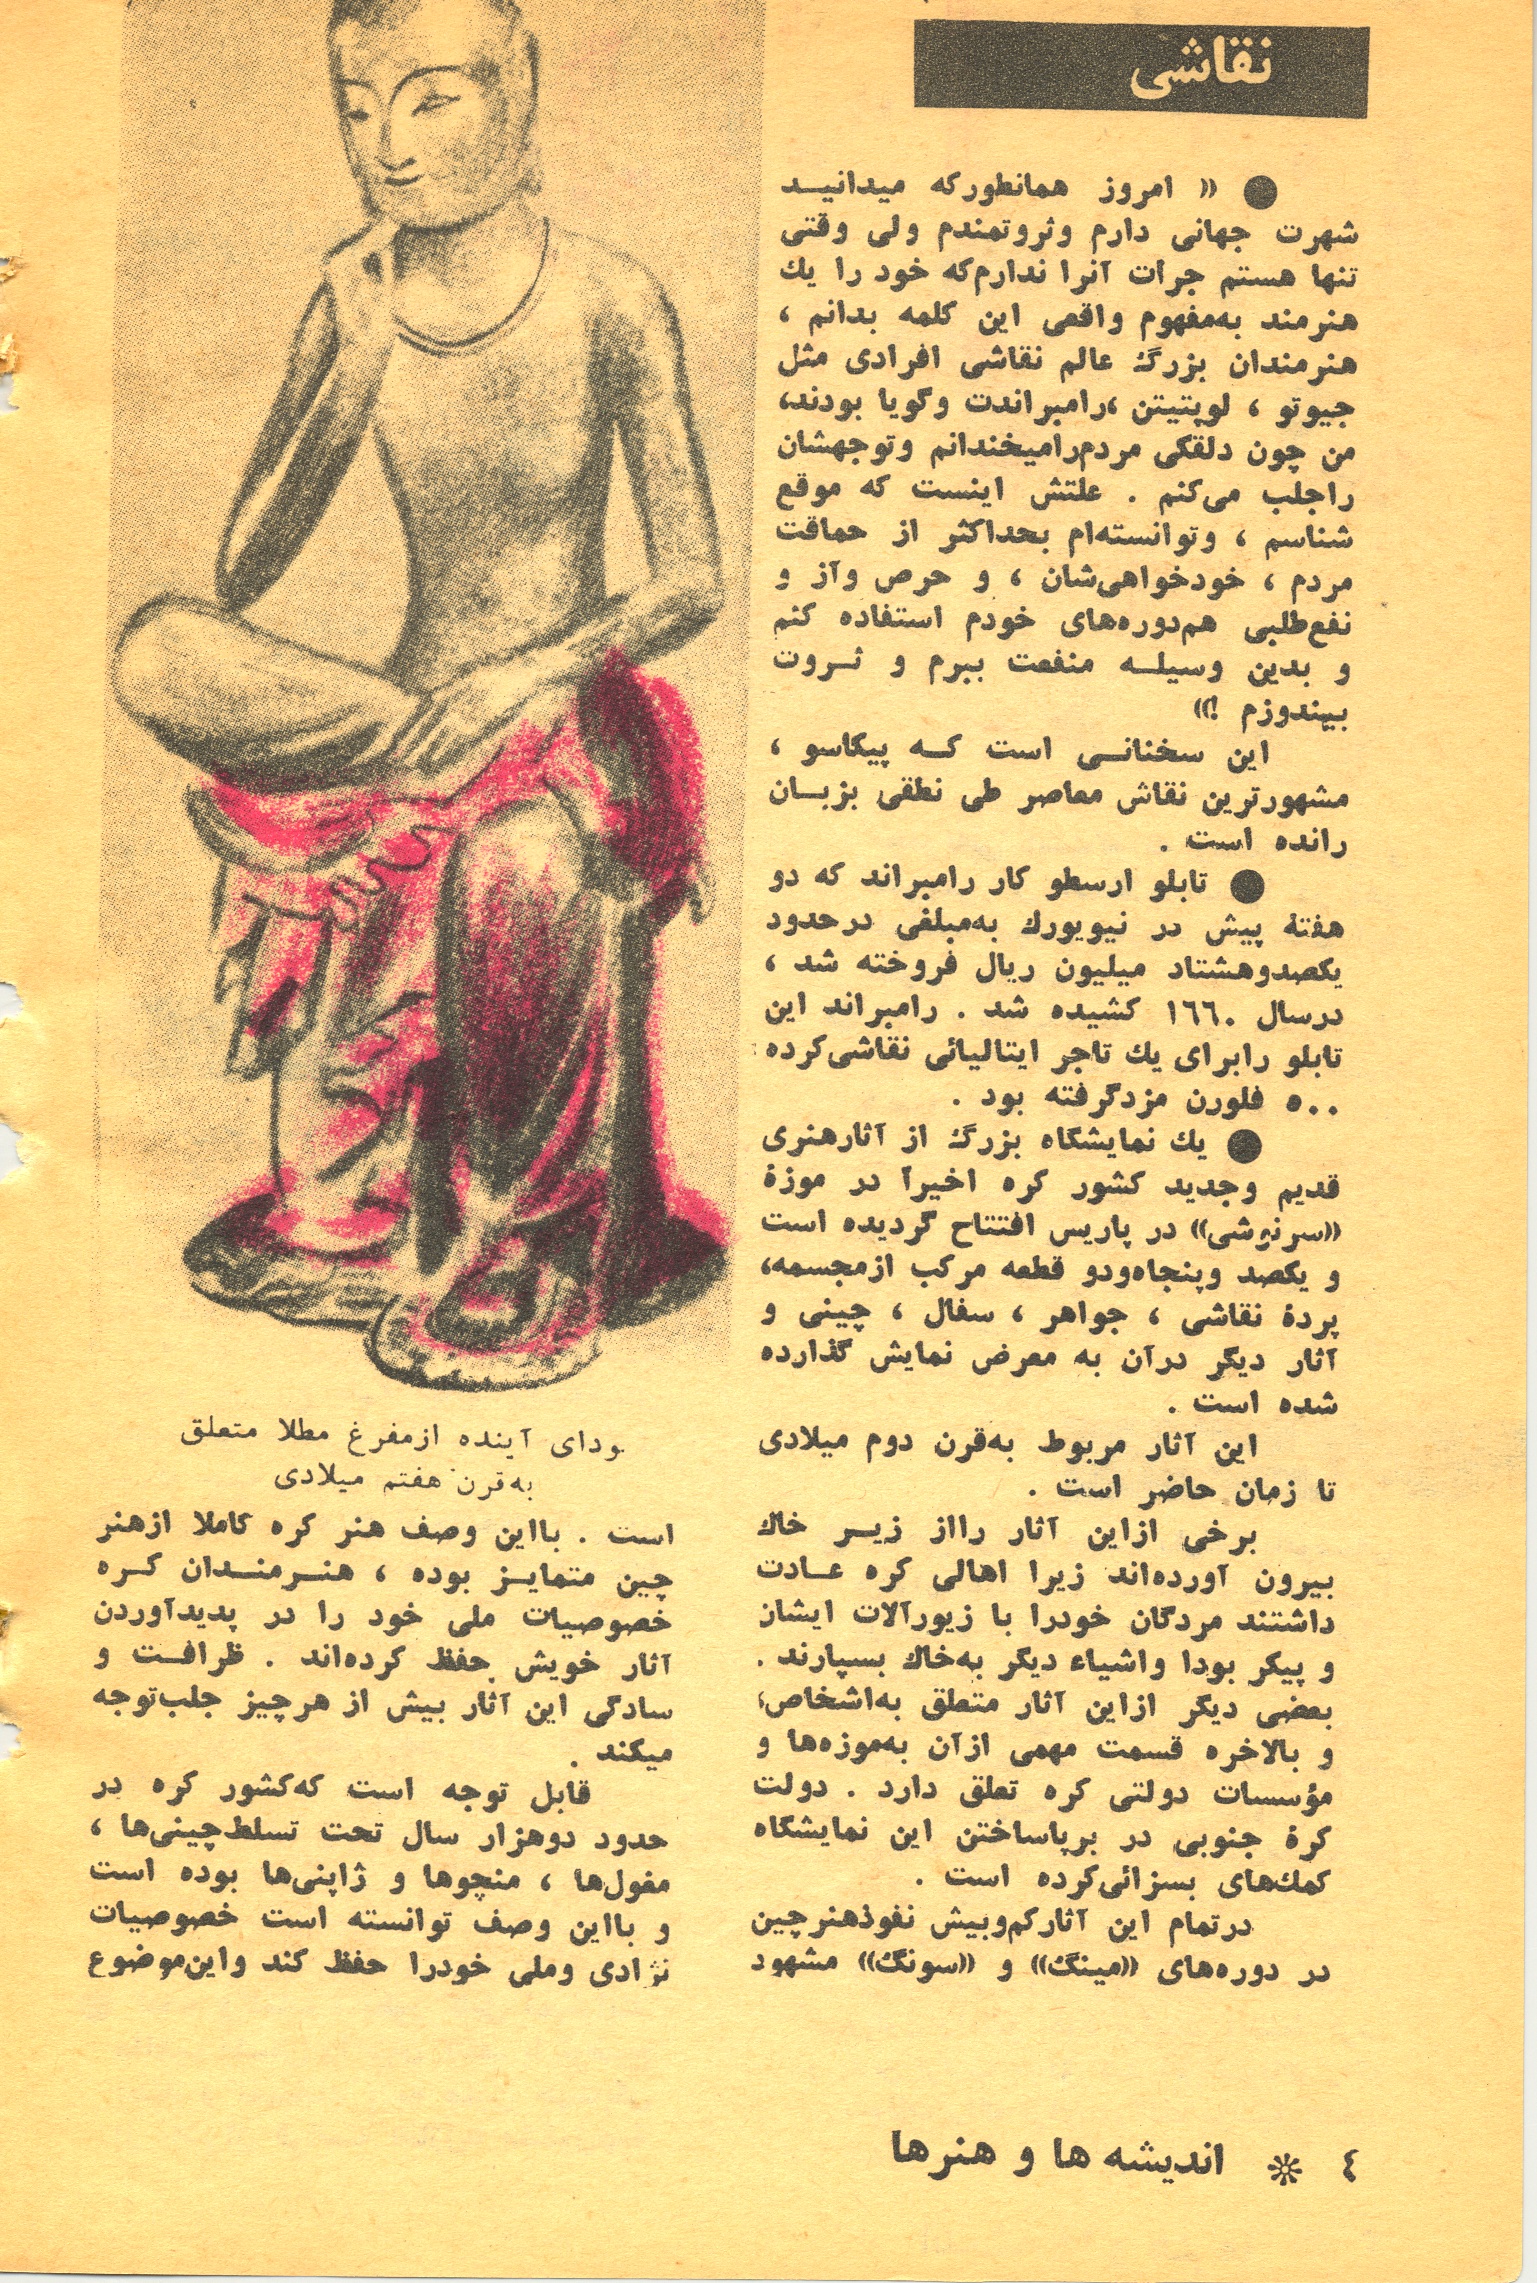 نقاشی
● « امروز همانطورکه میدانیــد
شهرت جهانی دارم وثروتمندم ولی وقتی
تنها هستم جرات آنرا ندارم‌که خود را یك
هنرمند به‌مفهوم واقعی این کلمه بدانم ،
هنرمندان بزرگ عالم نقاشی افرادی مثل
جیوتو ، لوپتیتن ،رامبراندت وگویا بودند،
من چون دلقکی مردم‌رامیخندانم وتوجهشان
راجلب می‌کنم . علتش اینست که موقع
شناسم ، وتوانسته‌ام بحداکثر از حماقت
مردم ، خودخواهی‌شان ، و حرص وآز و
نفع‌طلبی هم‌دوره‌های خودم استفاده کنم
و بدین وسیلــه منفعت ببرم و ثــروت
بیندوزم !»
این سخنانــی است کــه پیکاسو ،
مشهورترین نقاش معاصر طی نطقی بزبــان
رانده است .
● تابلو ارسطو کار رامبراند که دو
هفتهٔ پیش در نیویورك به‌مبلغی درحدود
یکصدوهشتاد میلیون ریال فروخته شد ،
درسال ۱٦٦۰ کشیده شد . رامبراند این
تابلو رابرای یك تاجر ایتالیائی نقاشی‌کرده
۵۰۰ فلورن مزدگرفته بود .
● یك نمایشگاه بزرگ از آثارهنری
قدیم وجدید کشور کره اخیراً در موزهٔ
«سرنوشی» در پاریس افتتاح گردیده است
و یکصد وپنجاه‌ودو قطعه مرکب ازمجسمه،
پردهٔ نقاشی ، جواهر ، سفال ، چینی و
آثار دیگر درآن به معرض نمایش گذارده
شده است .
این آثار مربوط به‌قرن دوم میلادی
تا زمان حاضر است .
برخی ازاین آثار رااز زیــر خاك
بیرون آورده‌اند زیرا اهالی کره عــادت
داشتند مردگان خودرا با زیورآلات ایشان
و پیکر بودا واشیاء دیگر به‌خاك بسپارند .
بعضی دیگر ازاین آثار متعلق به‌اشخاص،
و بالاخره قسمت مهمی ازآن به‌موزه‌ها و
مؤسسات دولتی کره تعلق دارد . دولت
کرهٔ جنوبی در برپاساختن این نمایشگاه
کمك‌های بسزائی‌کرده است .
درتمام این آثارکم‌وبیش نفوذهنرچین
در دوره‌های «مینگ» و «سونگ» مشهود
بودای آینده ازمفرغ مطلا متعلق
به‌قرن هفتم میلادی
است . بااین وصف هنر کره کاملا ازهنر
چین متمایــز بوده ، هنــرمنــدان کــره
خصوصیات ملی خود را در پدیدآوردن
آثار خویش حفظ کرده‌اند . ظرافــت و
سادگی این آثار بیش از هرچیز جلب‌توجه
میکند .
قابل توجه است که‌کشور کره در
حدود دوهزار سال تحت تسلط‌چینی‌ها ،
مغول‌ها ، منچوها و ژاپنی‌ها بوده است
و بااین وصف توانسته است خصوصیات
نژادی وملی خودرا حفظ کند واین‌موضوع
٤ ❊ اندیشه ها و هنرها